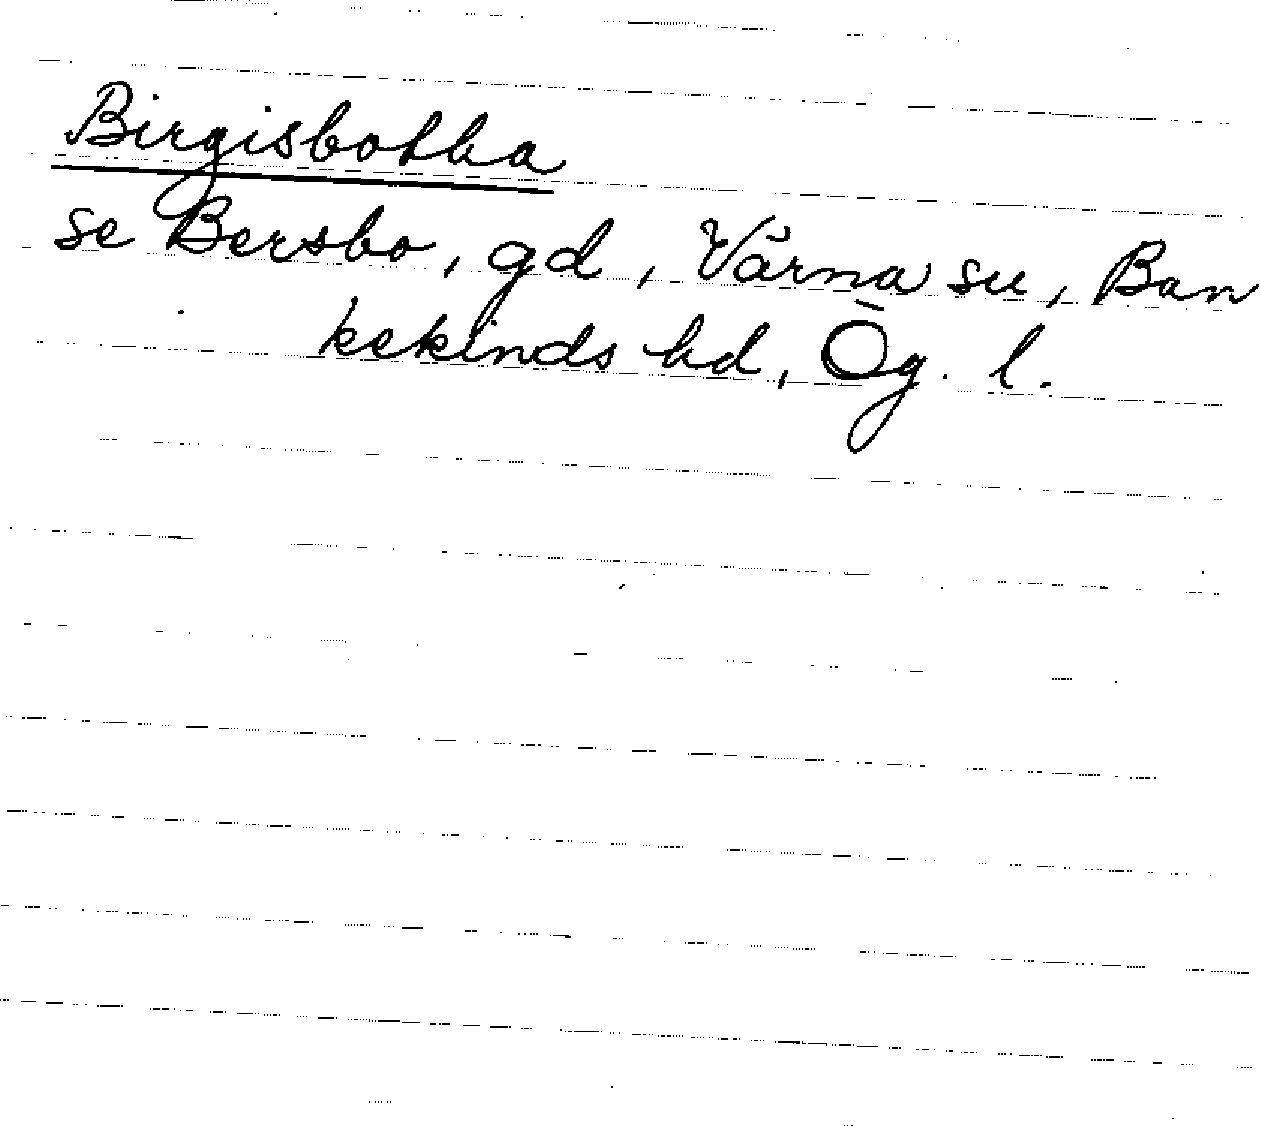 Birgisbotha
se Bersbo, gd, Värna sn, Ban
kekinds hd, Ög. l.